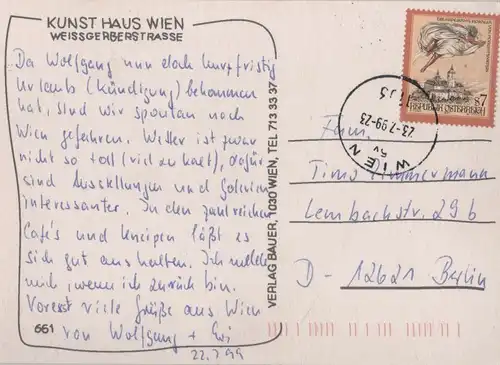 KUNST HAUS WIEN
WEISSGERBERSTRASSE
Da Wolfgang nun doch kurzfristig
Urlaub (Kündigung) bekommen
hat, sind wir spontan nach
Wien gefahren. Wetter ist zwar
nicht so toll (viel zu kalt), dafür
sind Ausstellungen und Galerien
interessanter. In den zahlreichen
Café's und Kneipen läßt es
sich gut aushalten. Ich melde
mich, wenn ich zurück bin.
Vorerst viele Grüße aus Wien
von Wolfgang + Evi
22.7.99
661
VERLAG BAUER, 1030 WIEN, TEL 713 33 37
REPUBLIK ÖSTERREICH
S 7
23-7.99-23
WIEN
Fam.
Timo Timmermann
Lembachstr. 29 b
D - 12621 Berlin